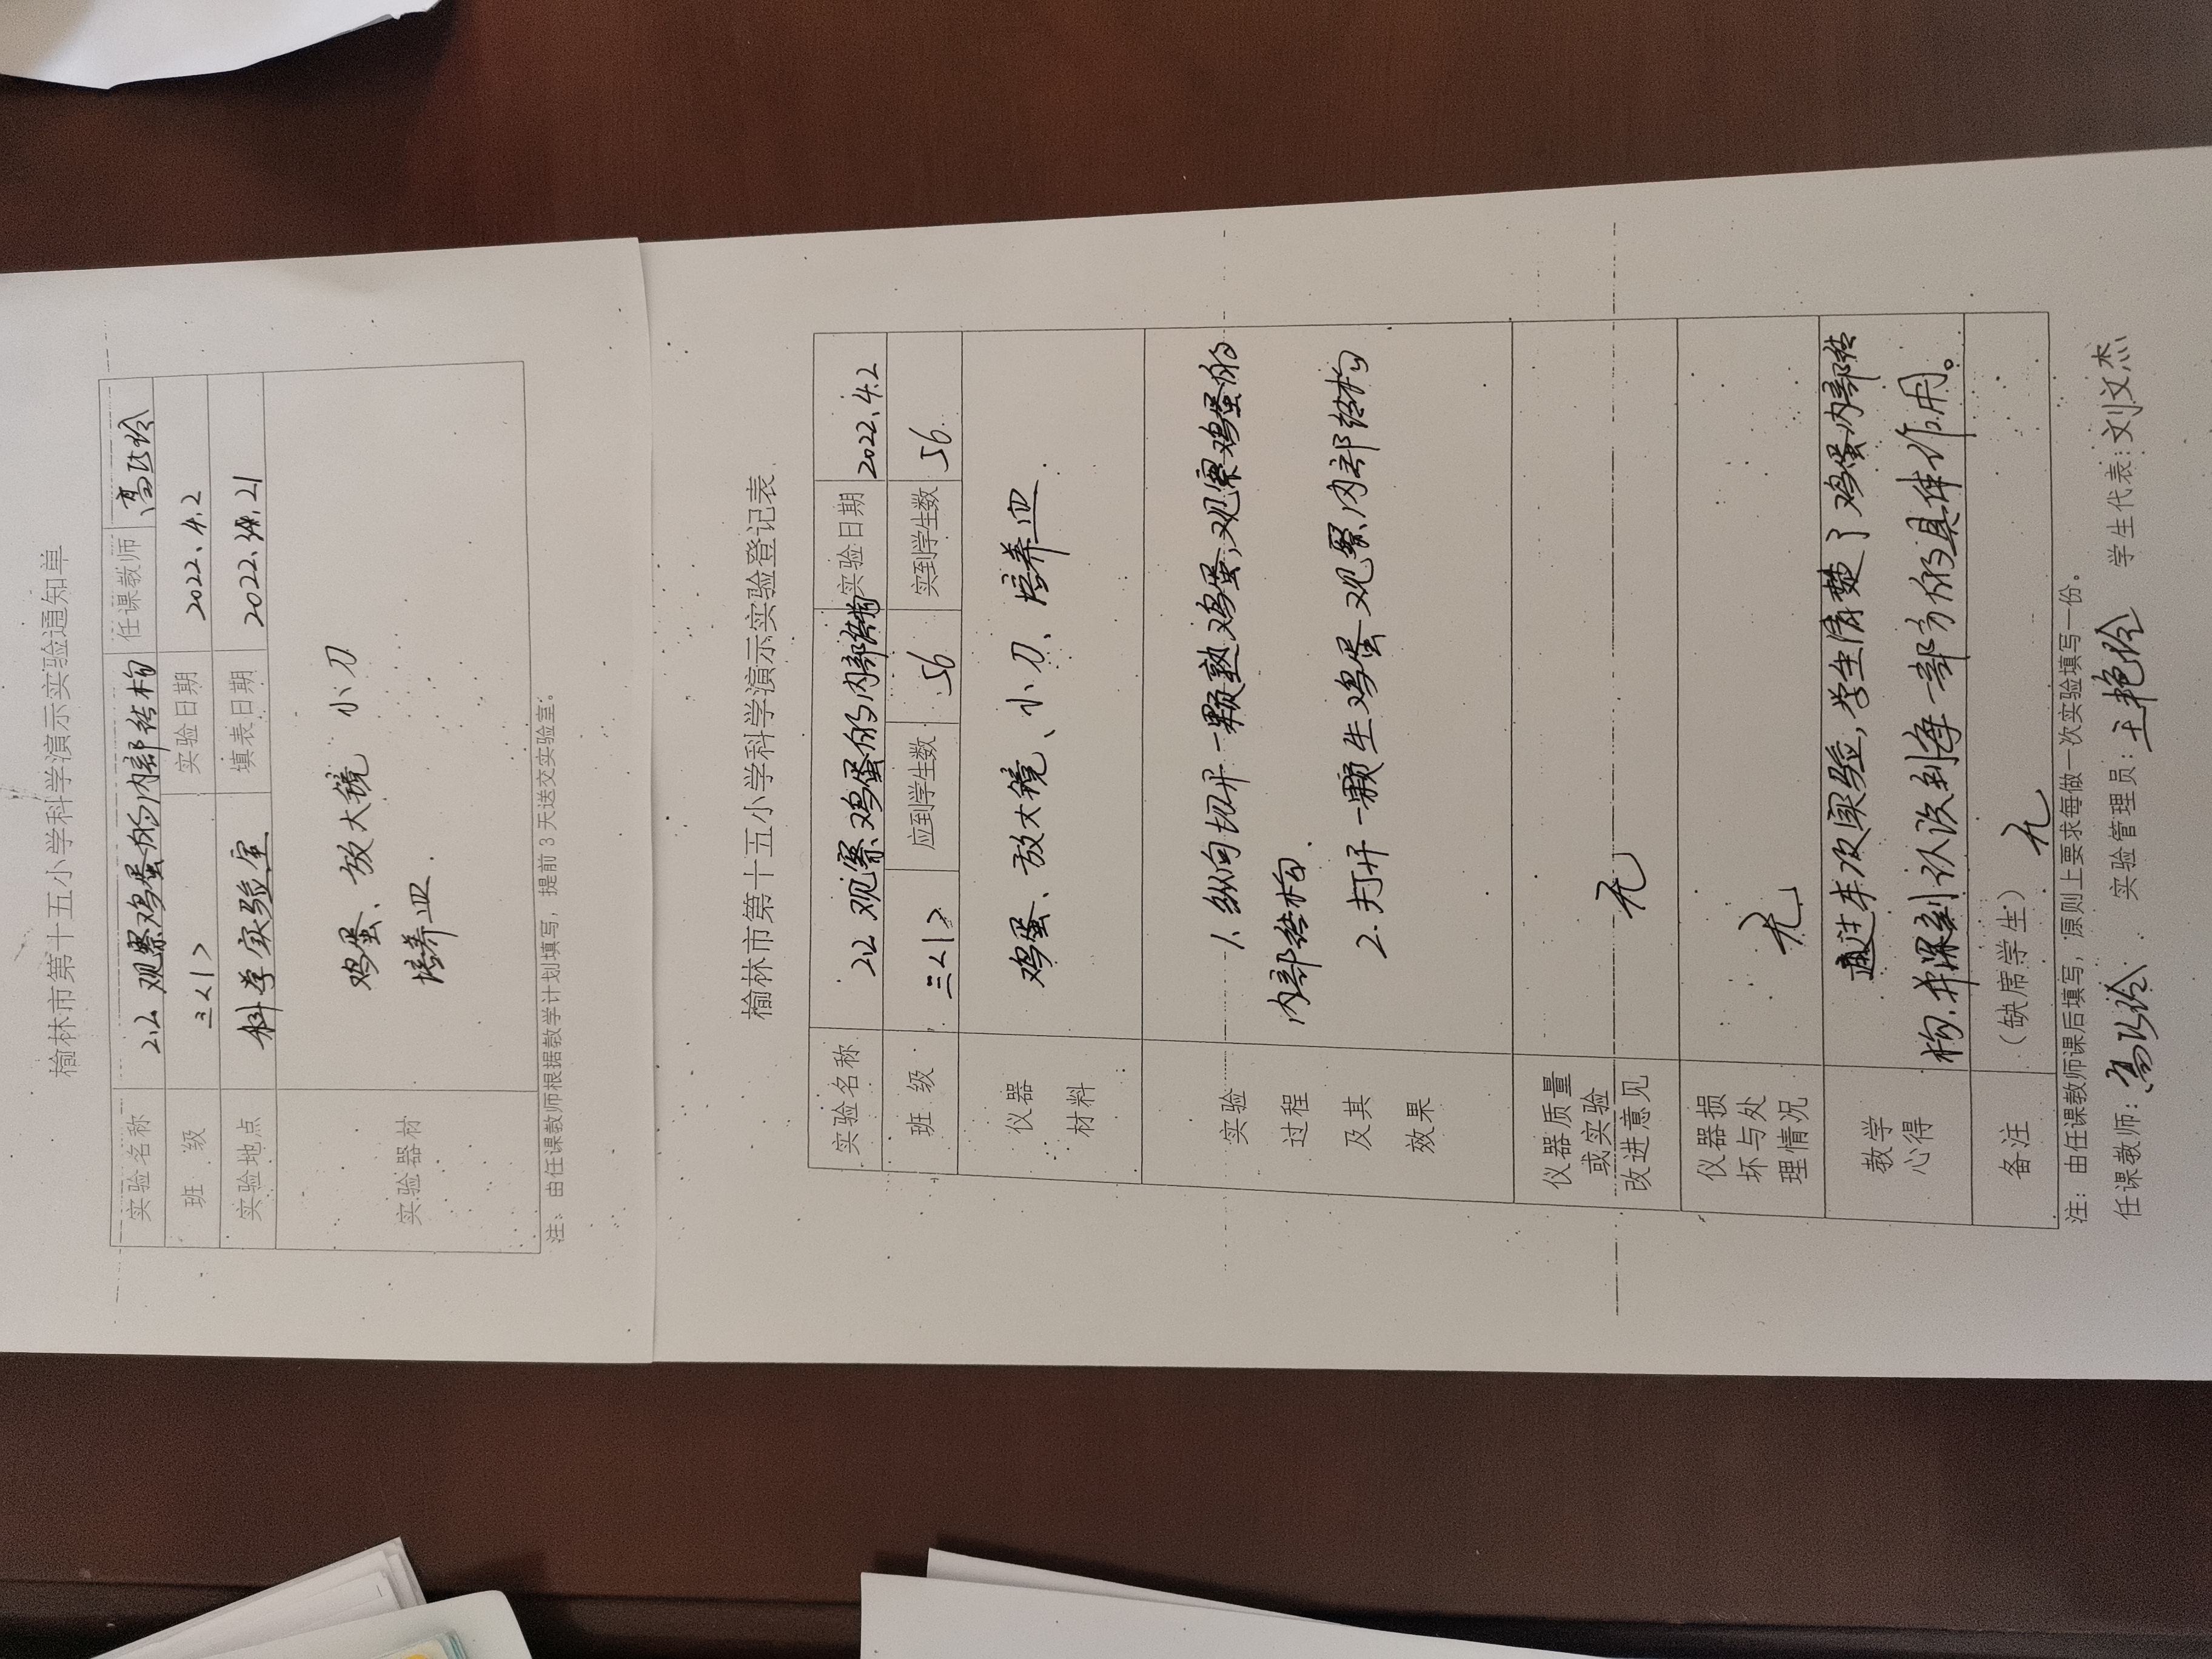 榆林市第十五小学科学演示实验通知单
实验名称 2.2 观察鸡蛋的内部结构 任课教师
班 级 三<1> 实验日期 2022.4.2
实验地点 科学实验室 填表日期
实验器材 鸡蛋、放大镜 小刀
培养皿.
注：由任课教师根据教学计划填写，提前 3 天送交实验室。
榆林市第十五小学科学演示实验登记表
实验名称 2.2 观察鸡蛋的内部结构 实验日期 2022.4.2
班 级 三<1> 应到学生数 56 实到学生数 56.
仪器 鸡蛋、放大镜、小刀、培养皿.
材料
实验 1. 纵向切开一颗熟鸡蛋,观察鸡蛋的
过程 内部结构.
及其 2. 打开一颗生鸡蛋观察内部结构
效果
仪器质量
或实验 无
改进意见
仪器损
坏与处 无
理情况
教学 通过本次实验,学生清楚了鸡蛋内部结
心得 构.并深刻认识到每一部分的具体作用。
备注 （缺席学生） 无
注：由任课教师课后填写，原则上要求每做一次实验填写一份。
任课教师: 实验管理员: 王艳玲 学生代表: 刘文杰